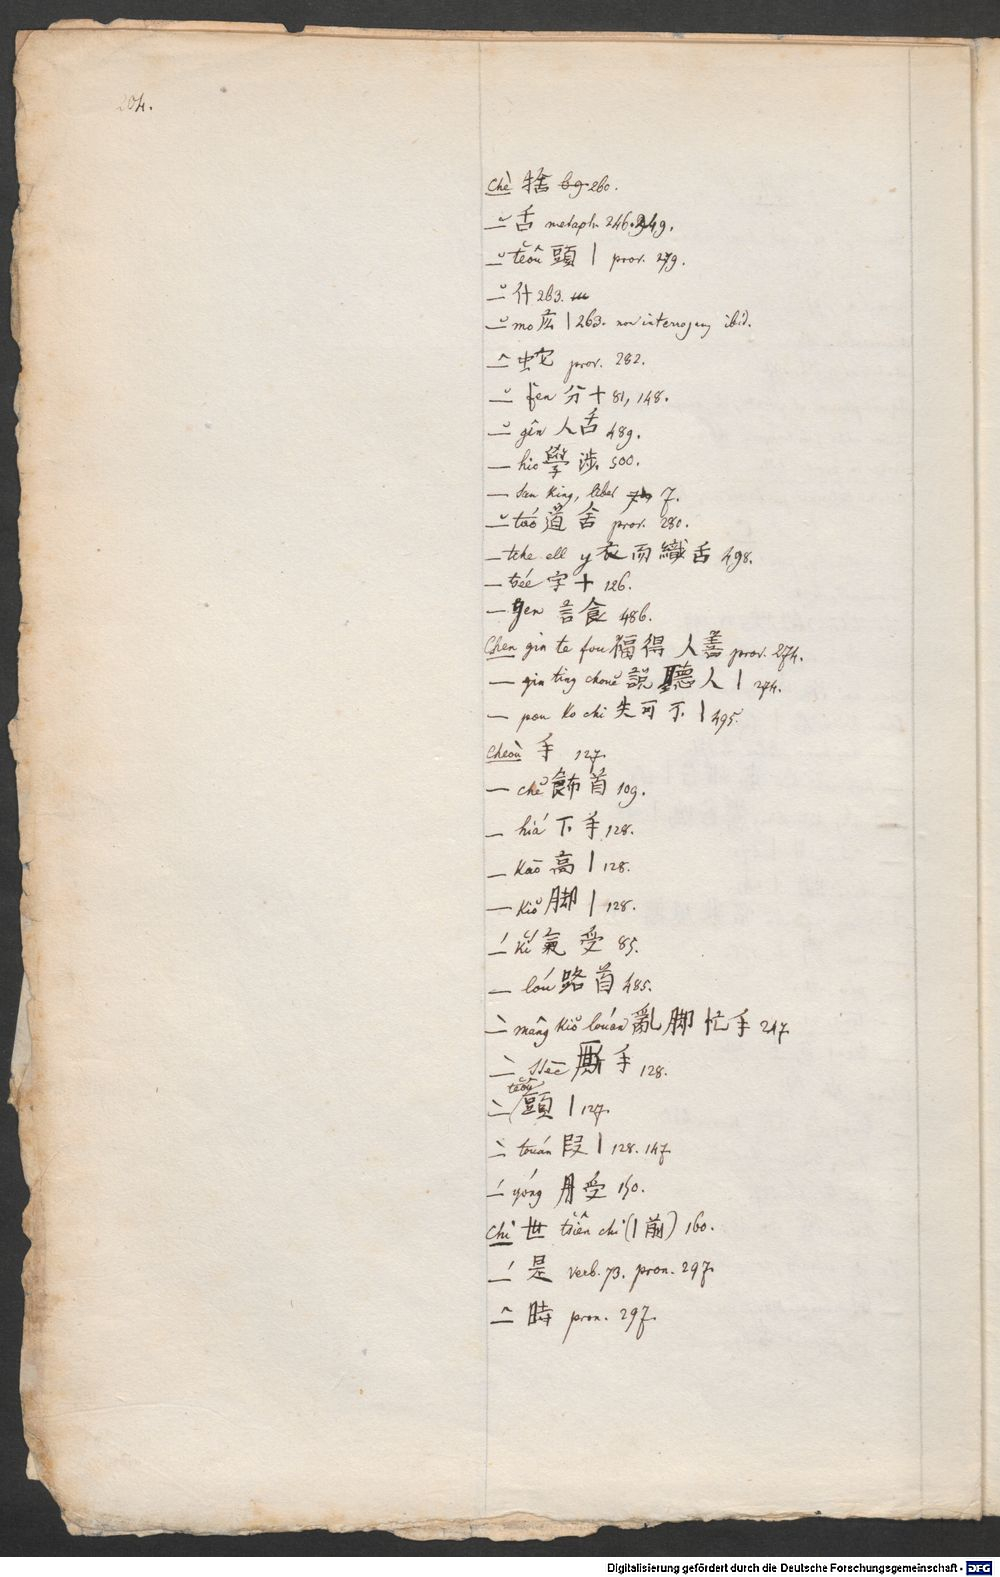 204.
Chè 捨 69 260.
— 舌 metaph. 246. 249.
— teôu 頭 | prov. 279.
— 什 263.
— mo 庅 | 263. non interrog. ibid.
— 蛇 prov. 282.
— fēn 分 十 81, 148.
— gîn 人 舌 489.
— hio 學 涉 500.
— San King, liber 7.
— táo 道 舍 prov. 280.
— tche ell y 衣 而 織 舌 498.
— tséé 字 十 126.
— yen 言 食 486.
Chen gin te fou 福 得 人 善 prov. 274.
— gin ting choue 說 聽 人 | 274.
— pou Ko chi 失 可 不 | 495.
Cheoù 手 127.
— chĕ 飾 首 109.
— hiá 下 手 128.
— Kāo 高 | 128.
— Kiŏ 脚 | 128.
— Kí 氣 受 85.
— lóu 路 首 485.
— mâng Kiŏ louán 亂 脚 忙 手 247
— ssēe 厮 手 128.
— teôu 頭 | 127.
— touán 段 | 128. 147
— yóng 用 受 150.
Chí 世 tsiên chí (| 前) 160.
— 是 verb. 73. pron. 297.
— 時 pron. 297.
Digitalisierung gefördert durch die Deutsche Forschungsgemeinschaft - DFG